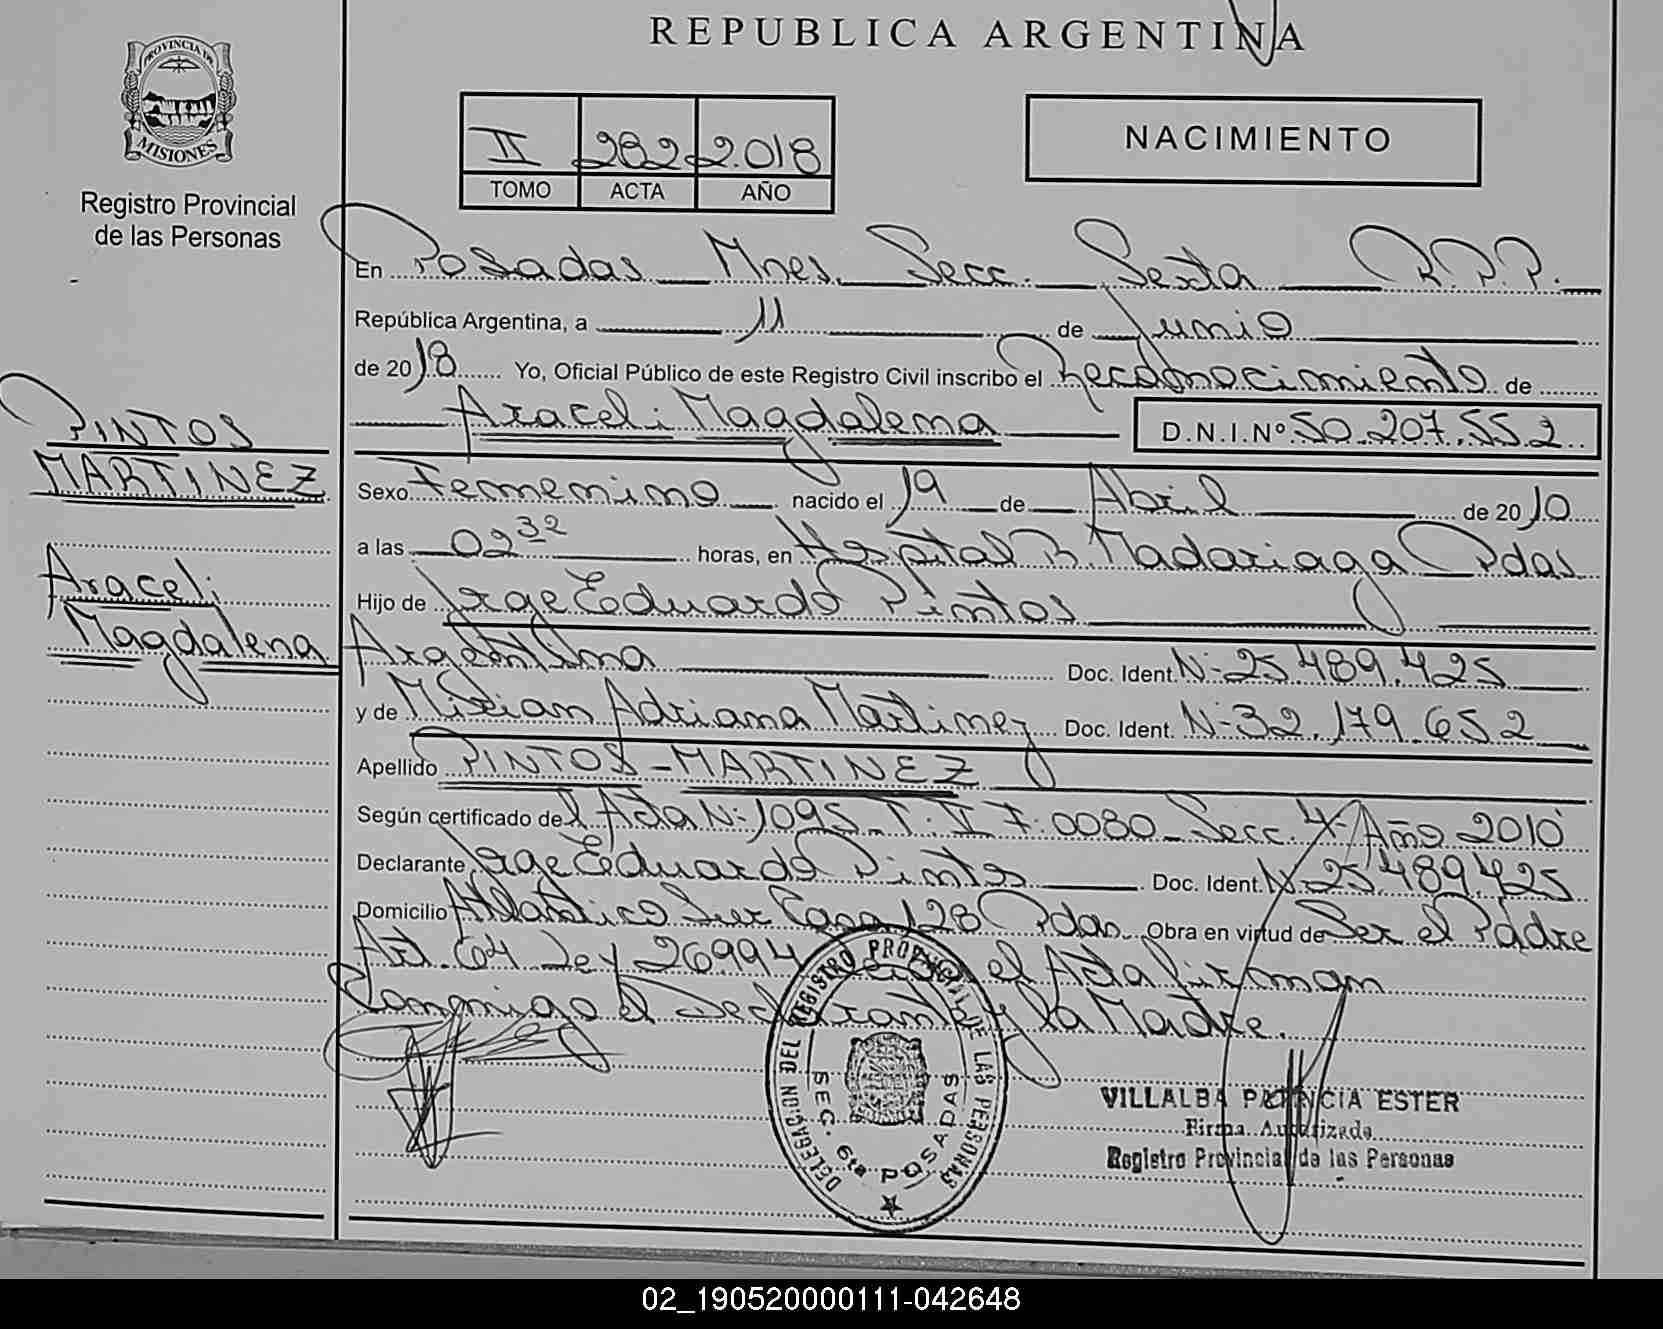 REPUBLICA ARGENTINA
PROVINCIA DE
MISIONES
Registro Provincial
de las Personas
II 282 2.018
TOMO ACTA AÑO
NACIMIENTO
En Posadas Mnes. Secc. Sexta R.P.P.
República Argentina, a 11 de Junio
de 2018 Yo, Oficial Público de este Registro Civil inscribo el Reconocimiento de
Araceli Magdalena D.N.I.Nº 50.207.552
PINTOS
MARTINEZ
Araceli
Magdalena
Sexo Femenino nacido el 19 de Abril de 2010
a las 02 32 horas, en Hospital R. Madariaga Pdas
Hijo de Jorge Eduardo Pintos
Argentina Doc. Ident. Nº 25.489.425
y de Mirian Adriana Martinez Doc. Ident. Nº 32.179.652
Apellido PINTOS - MARTINEZ
Según certificado del Acta Nº 1095 T. V F. 0080 Secc. 4ª Año 2010
Declarante Jorge Eduardo Pintos Doc. Ident. Nº 25.489.425
Domicilio Atlántico Sur Casa 128 Pdas. Obra en virtud de Ser el Padre
Art. 64 Ley 26994 el Acta firman
Conmigo el Declarante y la Madre.
DELEGACION DEL REGISTRO PROVINCIAL DE LAS PERSONAS
SEC. 6ta POSADAS
VILLALBA PATRICIA ESTER
Firma Autorizada
Registro Provincial de las Personas
02_190520000111-042648